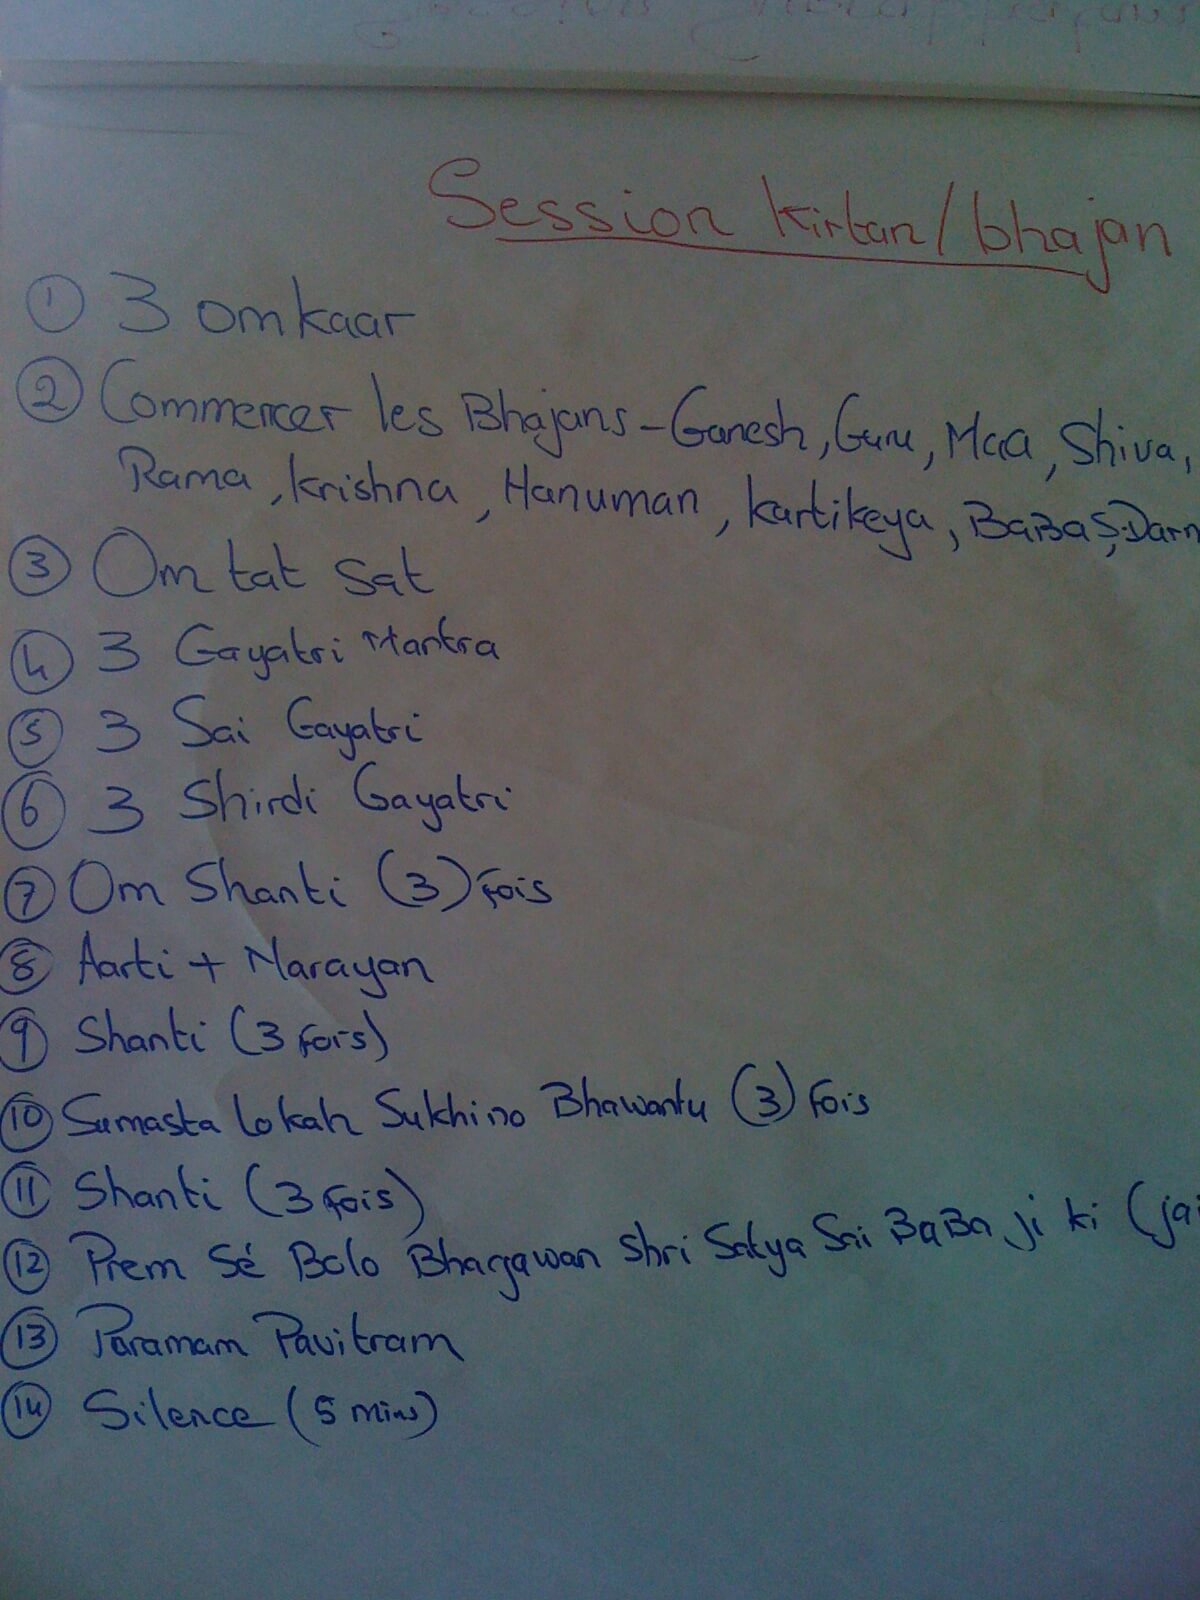 Session Kirtan/bhajan
① 3 omkaar
② Commencer les Bhajans - Ganesh, Guru, Maa, Shiva,
Rama, krishna, Hanuman, kartikeya, BaBa S.Darn
③ Om tat sat
④ 3 Gayatri Mantra
⑤ 3 Sai Gayatri
⑥ 3 Shirdi Gayatri
⑦ Om Shanti (3) Fois
⑧ Aarti + Narayan
⑨ Shanti (3 Fois)
⑩ Sumasta Lokah Sukhino Bhawantu (3) Fois
⑪ Shanti (3 Fois)
⑫ Prem Sé Bolo Bhagawan Shri Satya Sai BaBa ji ki (jai
⑬ Paramam Pavitram
⑭ Silence (5 mins)